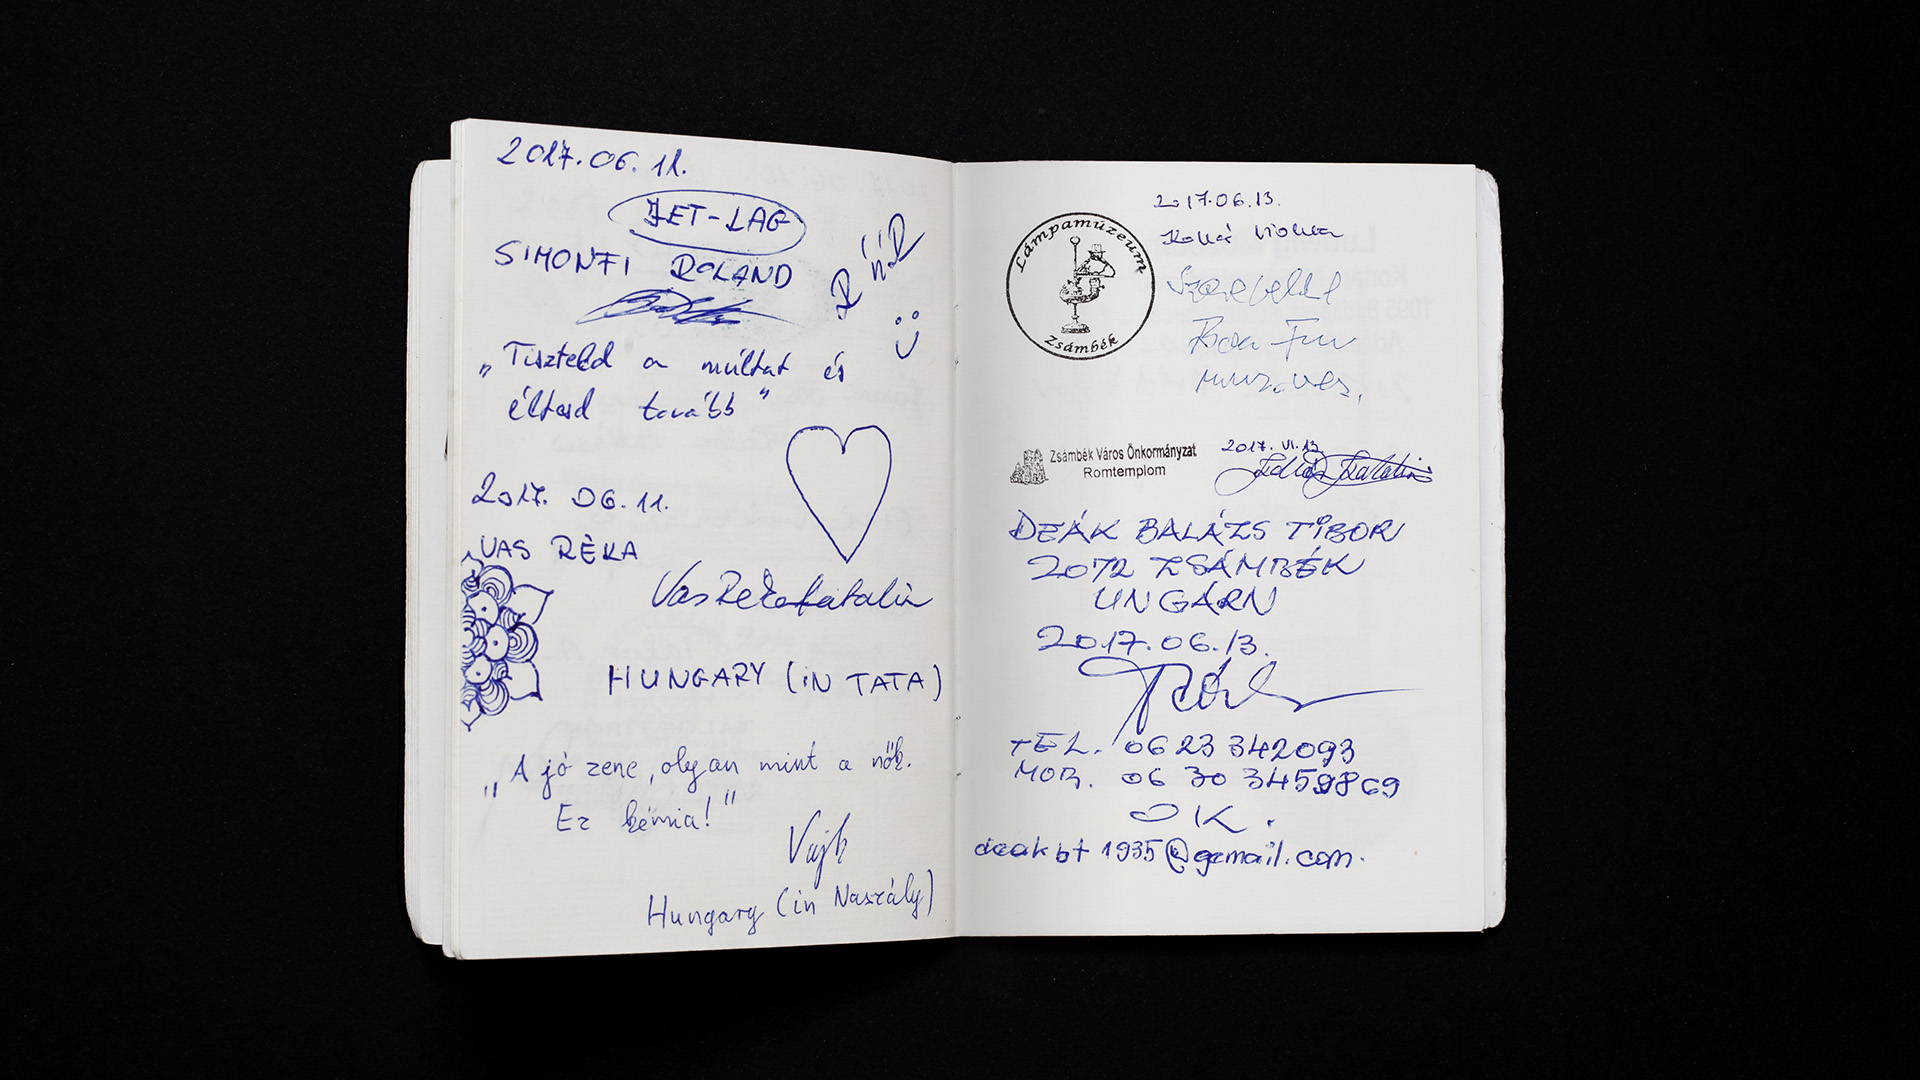 2017.06.11.
JET-LAG
SIMONFI ROLAND
„Tiszteld a múltat és
éltesd tovább”
2017. 06. 11.
VAS RÉKA
Vas Réka Katalin
HUNGARY (IN TATA)
„A jó zene, olyan mint a nők.
Ez kémia!"
Vajk
Hungary (in Naszály)
2017.06.13.
Lámpamúzeum
Zsámbék
2017. VI. 13.
Zsámbék Város Önkormányzat
Romtemplom
DEÁK BALÁZS TIBOR
2072 ZSÁMBÉK
UNGÁRN
2017.06.13.
TEL. 06 23 342093
MOB. 06 30 3459869
OK.
deakbt1935@gmail.com.